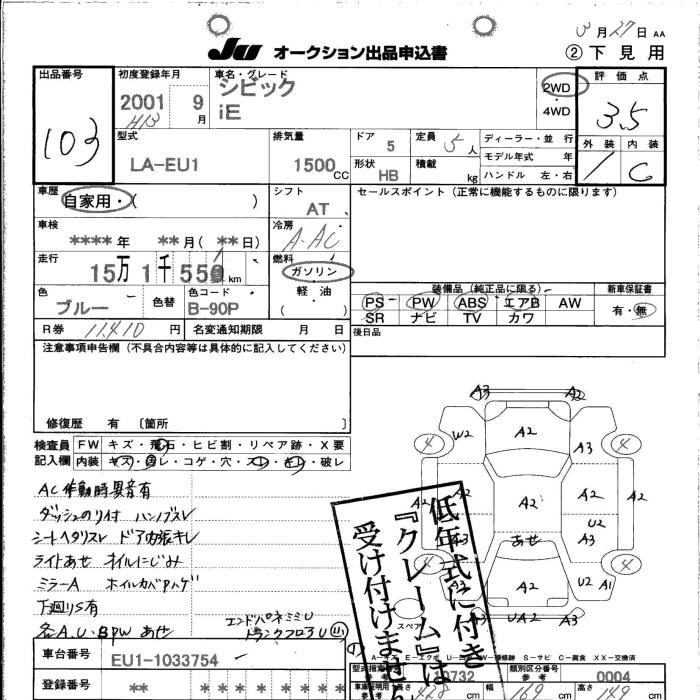 3月27日 AA
JU オークション出品申込書 ②下見用
出品番号 初度登録年月 車名・グレード 評価点
103 2001 9月 シビック 2WD 3.5
H13 iE 4WD
型式 排気量 ドア 5 定員 5人 ディーラー・並行 外装 内装
LA-EU1 1500CC 形状 HB 積載 kg モデル年式 年 C
ハンドル 左・右
車歴 自家用・( ) シフト AT セールスポイント (正常に機能するものに限ります)
車検 冷房
****年 **月( **日) A-AC
走行 燃料
15万1千55 km ガソリン
軽・油 ( )
色 ブルー 色替 色コード B-90P
装備品(純正品に限る) 新車保証書
PS PW ABS エアB AW 有・無
SR ナビ TV カワ
R券 11,410円 名変通知期限 月 日 後日品
注意事項申告欄 (不具合内容等は具体的に記入してください)
修復歴 有 〔箇所 〕
検査員 FW キズ・飛石・ヒビ割・リペア跡・X要
記入欄 内装 キズ・汚レ・コゲ・穴・スレ・キレ・破レ
AC作動時異音有
ダッシュのり付 ハンドルスレ
シートヘタリスレ ドア内張キレ
ライトあせ オイルにじみ
ミラーA ホイルカバPハゲ
下廻りS有
各A.U.BPW あせ
エンドパネミミU
トランクフロアU
A3 A2
4 W2 A2 A3 4
A2 A2 A2 A2 A2
U2
A3 A3 あせ A3
4 A2 U2 A1 4
A3 UA2 A3
スペア
低年式に付き
『クレーム』は
受け付けません
A-キズ U-エクボ W-補修跡 S-サビ C-腐食 XX-交換済
車台番号 EU1-1033754
類別区分番号
0732 0004
登録番号 **